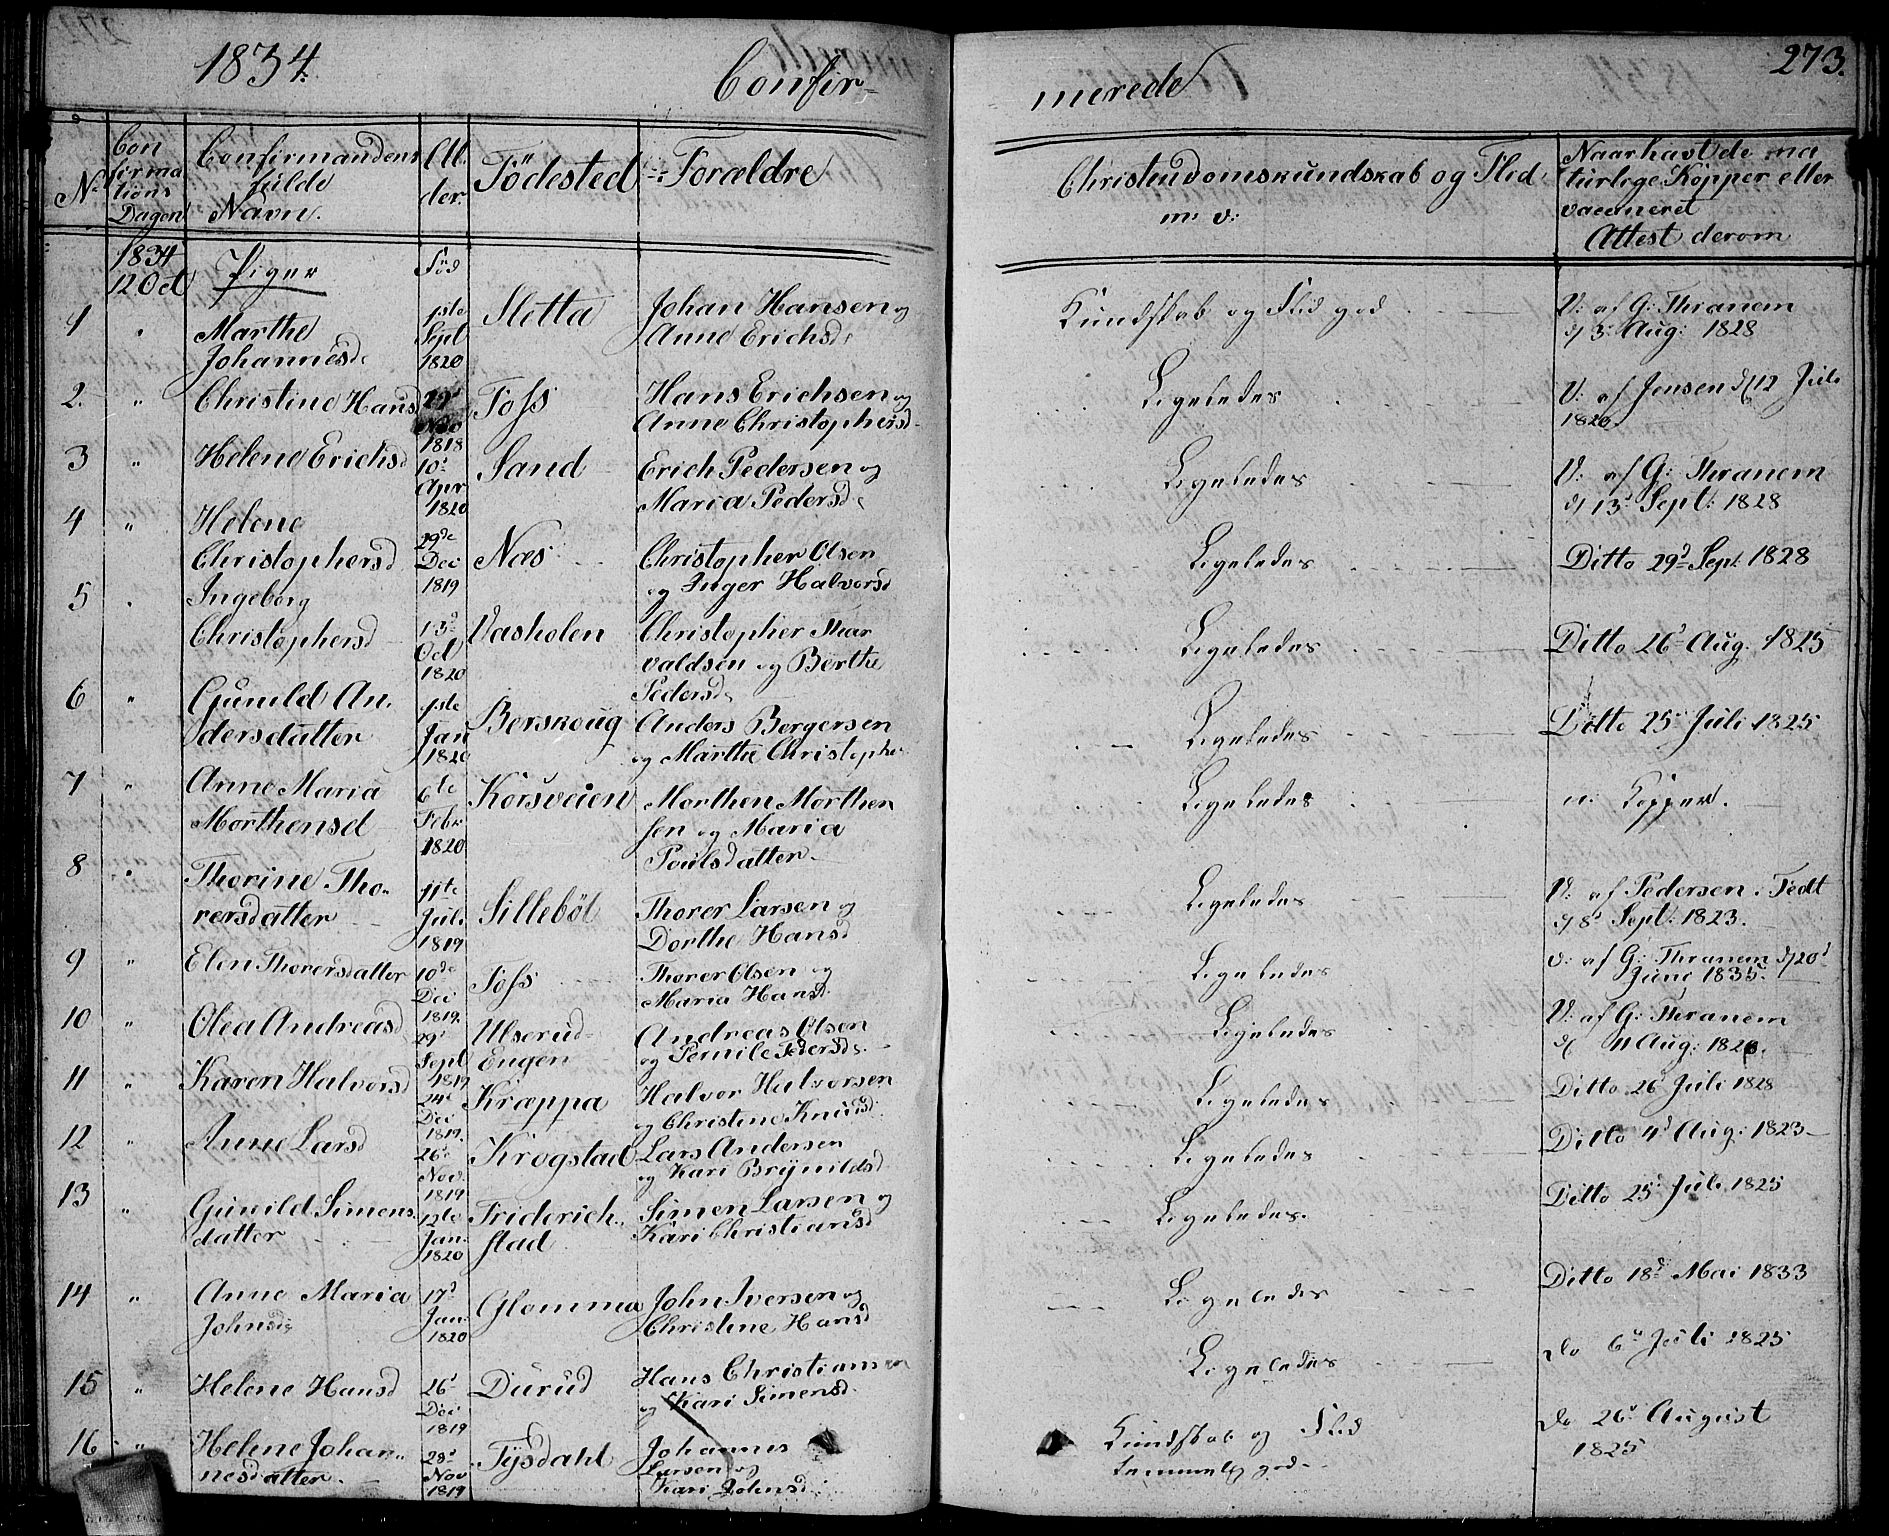 1834.
Confir-
merede
273.
No
Con
firma
tions
Dagen
Confirmandens
fulde
Navn.
Al.
der.
Födested
Forældre
Christendomskundskab og Flid
m: v:
Naar havt de na
turlige Kopper eller
vaccineret
Attest derom
1834
12 Oct
Piger
Fød
1
"
Marthe
Johannesd
1ste
Sept
1820
Sletta
Johan Hansen og
Anne Erichsd
Kundskab og Flid god
V: af G: Thranem
d/ 3 Aug: 1828
2.
"
Christine Hansd
29
Nov
1818
Foss
Hans Erichsen og
Anne Christophersd
Ligeledes
V: af Jensen d/12 Juli
1820
3
"
Helene Erichsd
10
Apr
1820
Sand
Erich Pedersen og
Maria Pedersd
Ligeledes
V: af G: Thranem
d/ 13 Sept: 1828
4
"
Helene
Christophersd
29de
Dec
1819
Næs
Christopher Olsen
og Inger Halvorsd
Ligeledes
Ditto 29 Sept 1828
5
"
Ingeborg
Christophersd
13
Oct
1820
Vasholen
Christopher Thor
valdsen og Berthe
Pedersd
Ligeledes
Ditto 26 Aug. 1825
6
"
Gunild An.
dersdatter
1ste
Jan
1820
Borskoug
Anders Bergersen
og Marthe Christophe
Ligeledes
Ditto 25 Juli 1825
7
"
Anne Maria
Morthensd
6te
Febr
1820
Korsveien
Morthen Morthen
sen og Maria
Poulsdatter
Ligeledes
n: Kopper.
8
"
Thorine Tho-
rersdatter
11te
Juli
1819
Sillebøl
Thorer Larsen og
Dorthe Hansd
Ligeledes
V: af Pedersen i Tedt
d/ 8 Sept: 1823
9
"
Elen Thorersdatter
10de
Dec
1819
Foss
Thorer Olsen og
Maria Hansd.
Ligeledes
v: af G: Thranem d/20
Juni 1835
10
"
Olea Andreasd
29
Sept
1819
Ulserud-
Eugen
Andreas Olsen
og Pernile Pedersd
Ligeledes
V: af G: Thranem
d/ 11 Aug: 1826
11
"
Karen Halvorsd
24
Dec
1819
Kræppa
Halvor Halvorsen
og Christine Knudsd
Ligeledes
Ditto 26 Juli 1828
12
"
Anne Larsd
26
Nov.
1819
Krogstad
Lars Andersen
og Kari Brynildsd
Ligeledes
Ditto 4 Aug: 1823
13
"
Gunild Simens
datter
12te
Jan.
1820
Friderich-
stad
Simen Larsen og
Kari Christiansd
Ligeledes.
Ditto 25 Juli 1825
14
"
Anne Maria
Johnsd
17
Jan
1820
Glomma
John Iversen og
Christine Hansd
Ligeledes
Ditto 18 Mai 1833
15
"
Helene Hansd
26
Dec
1819
Durud
Hans Christiansen
og Kari Simensd.
Ligeledes
do 6 Juli 1825
16
"
Helene Johan-
nesdatter
28
Nov
1819
Tysdahl
Johannes
Larsen og
Kari Johnsd
Kundskab og Flid
temmelig god
do 26 August
1825